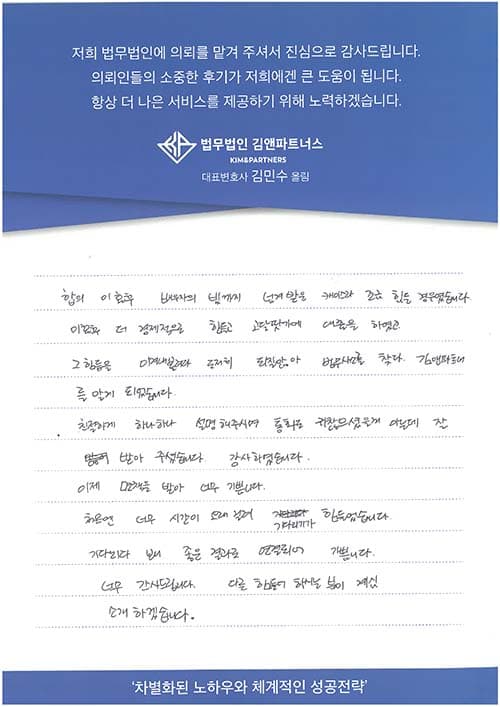 저희 법무법인에 의뢰를 맡겨 주셔서 진심으로 감사드립니다.
의뢰인들의 소중한 후기가 저희에겐 큰 도움이 됩니다.
항상 더 나은 서비스를 제공하기 위해 노력하겠습니다.
법무법인 김앤파트너스
KIM&PARTNERS
대표변호사 김민수 올림
합의 이혼후 배우자의 빚까지 넘겨 받은 케이스라 조금 힘든 경우였습니다
이혼후 더 경제적으로 힘들고 대출을 하였고
그 힘듦은 도저히 되질않아 법무사무소를 찾다. 김앤파트너
를 알게 되었습니다.
친절하게 하나하나 설명해주시며 통화도 귀찮으셨을게 아닐텐데 잘
받아 주셨습니다. 감사하였습니다.
이제 면책을 받아 너무 기쁩니다.
처음엔 너무 시간이 오래 걸려 기다리기가 힘들었습니다
기다리다 보니 좋은 결과로 연결되어 기쁩니다.
너무 감사드립니다. 다른 힘들어 하시는 분이 계심
소개 하겠습니다.
'차별화된 노하우와 체계적인 성공전략'